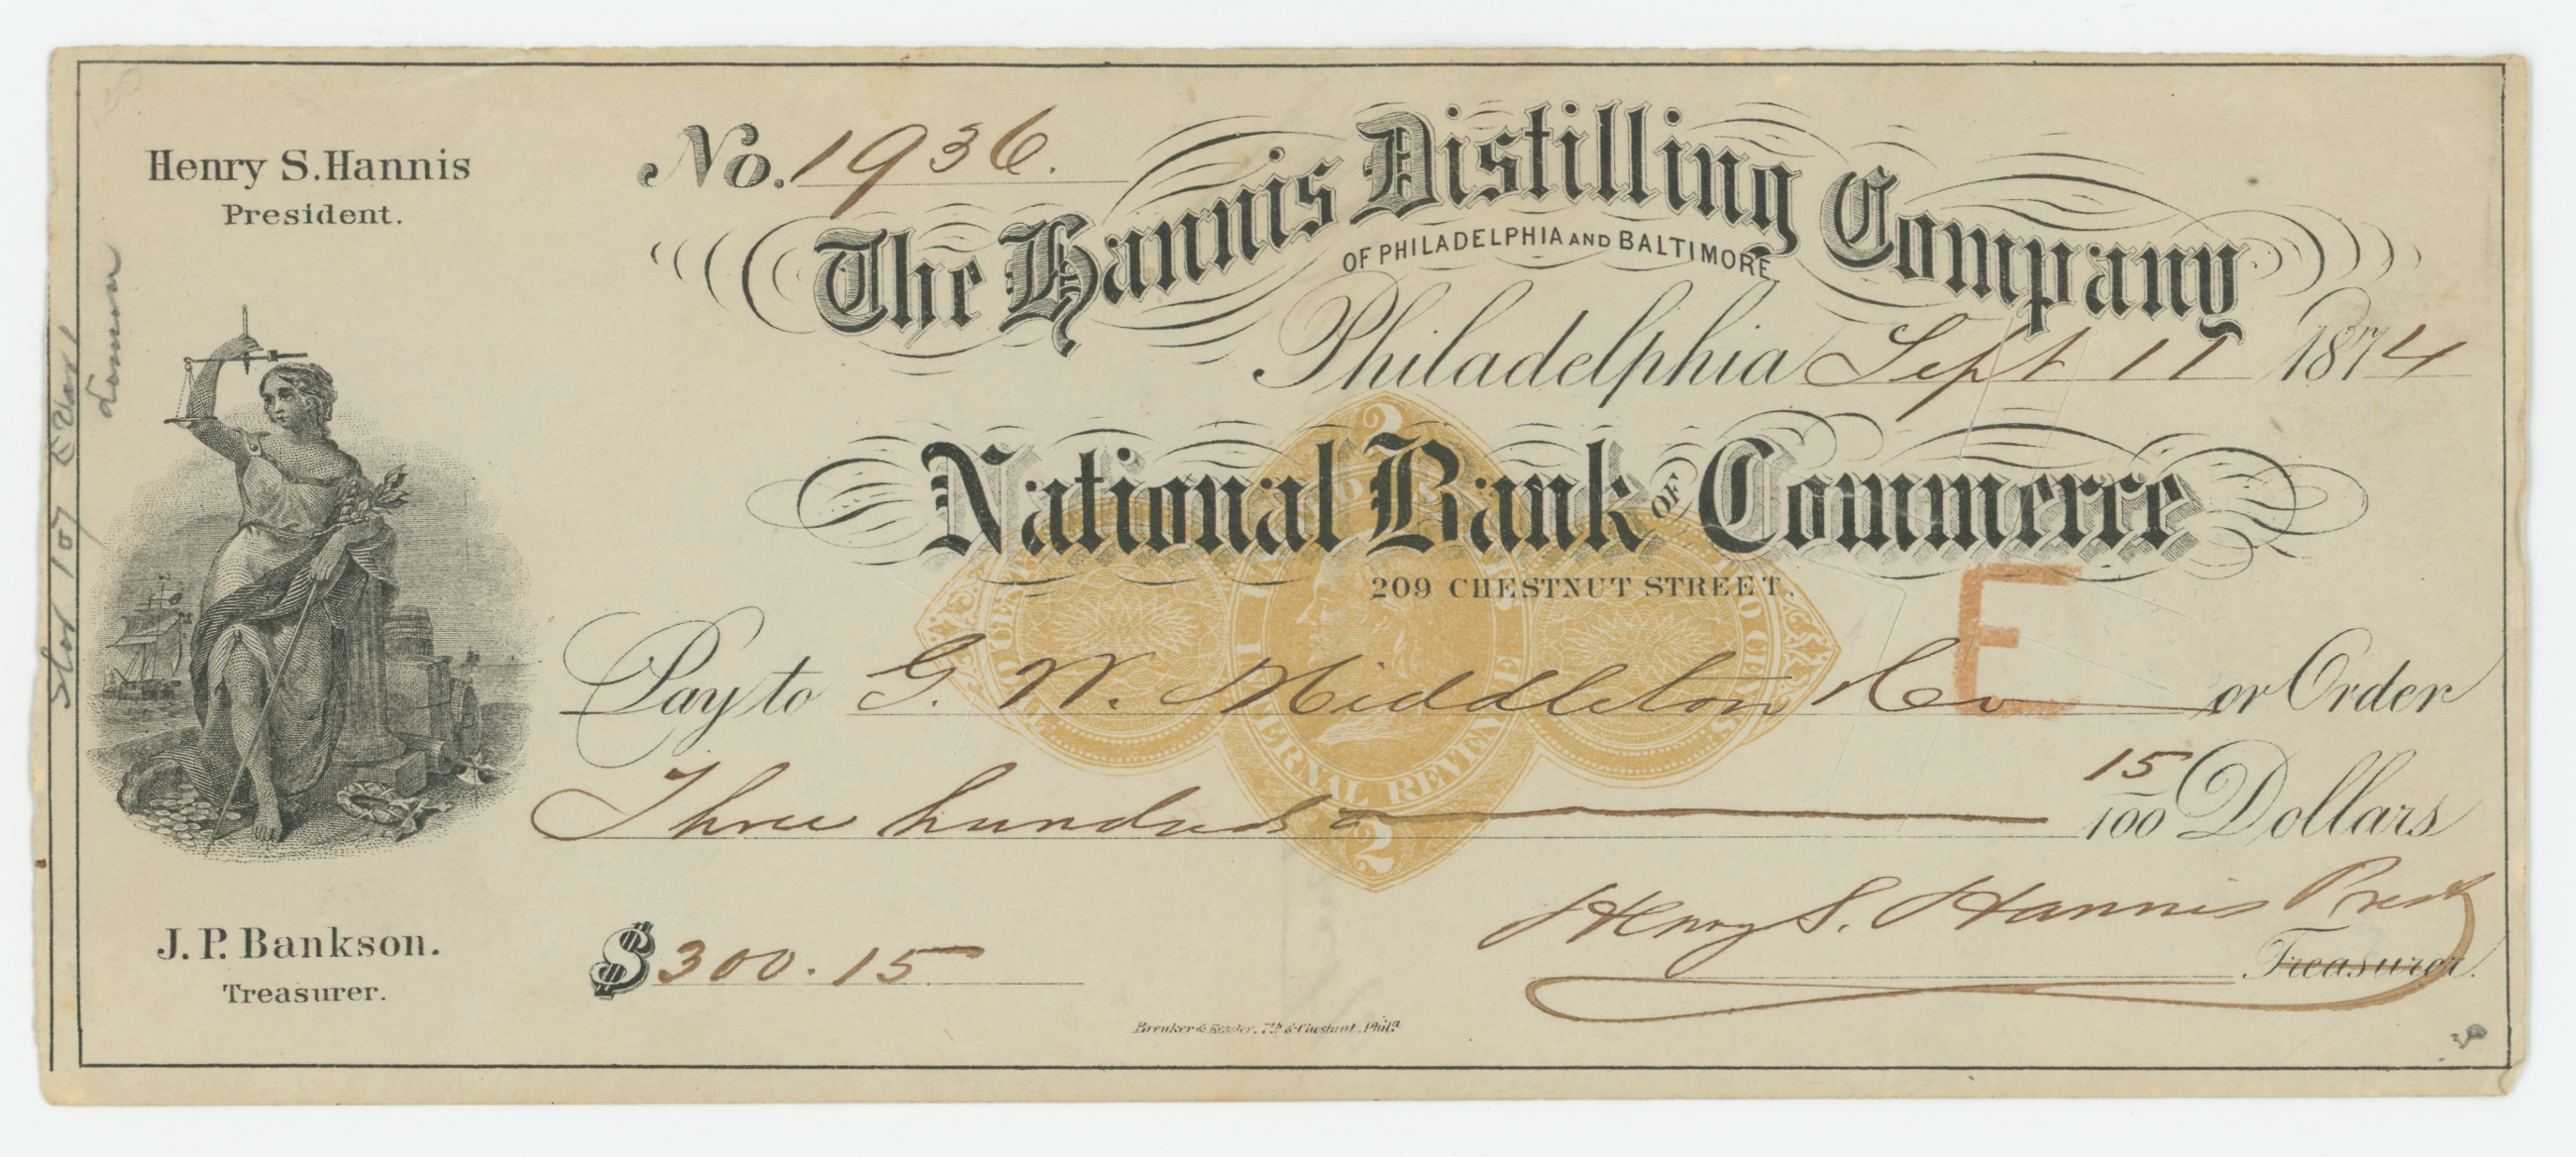 Henry S. Hannis
President.
No. 1936.
The Hannis Distilling Company
OF PHILADELPHIA AND BALTIMORE
Philadelphia Sept 11 1874
National Bank OF Commerce
209 CHESTNUT STREET.
E
Pay to G. W. Middleton & Co or Order
Three hundred & 15/100 Dollars
2
INTERNAL REVENUE
2
J. P. Bankson.
Treasurer.
$300.15
Henry S. Hannis Prest
Treasurer.
Breuker & Kessler. 7th & Chestnut. Phila